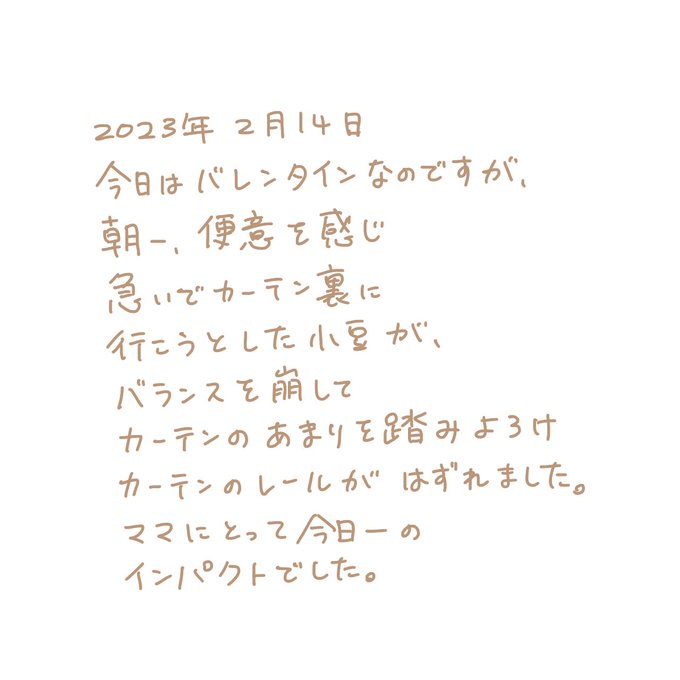 2023年 2月14日
今日はバレンタインなのですが、
朝一、便意を感じ
急いでカーテン裏に
行こうとした小豆が、
バランスを崩して
カーテンのあまりを踏みよろけ
カーテンのレールがはずれました。
ママにとって今日一の
インパクトでした。